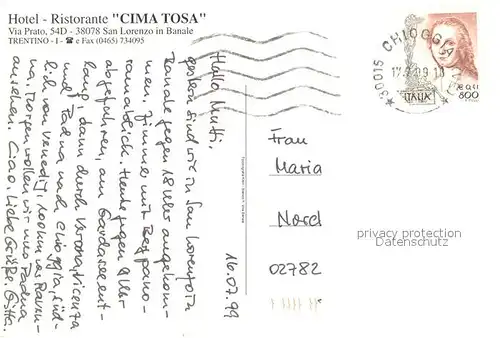 Hotel - Ristorante "CIMA TOSA"
Via Prato, 54D - 38078 San Lorenzo in Banale
TRENTINO - I - ☎ e Fax (0465) 734095
16.07.99
Hallo Mutti,
gestern sind wir in San Lorenzo in
Banale gegen 18 Uhr angekom-
men. Zimmer mit Bergpano-
ramablick. Heute gegen 9 Uhr
abgefahren, am Gardasee ent-
lang, dann durch Verona, Vicenza
und Padua nach Chioggia, süd-
lich von Venedig, 100km vor Raven-
na. Morgen wollen wir uns Padua
ansehen. Ciao. Liebe Grüße. Gitta.
30015 CHIOGGIA
ITALIA
800
Frau
Maria
Nordt
02782
privacy protection
Datenschutz